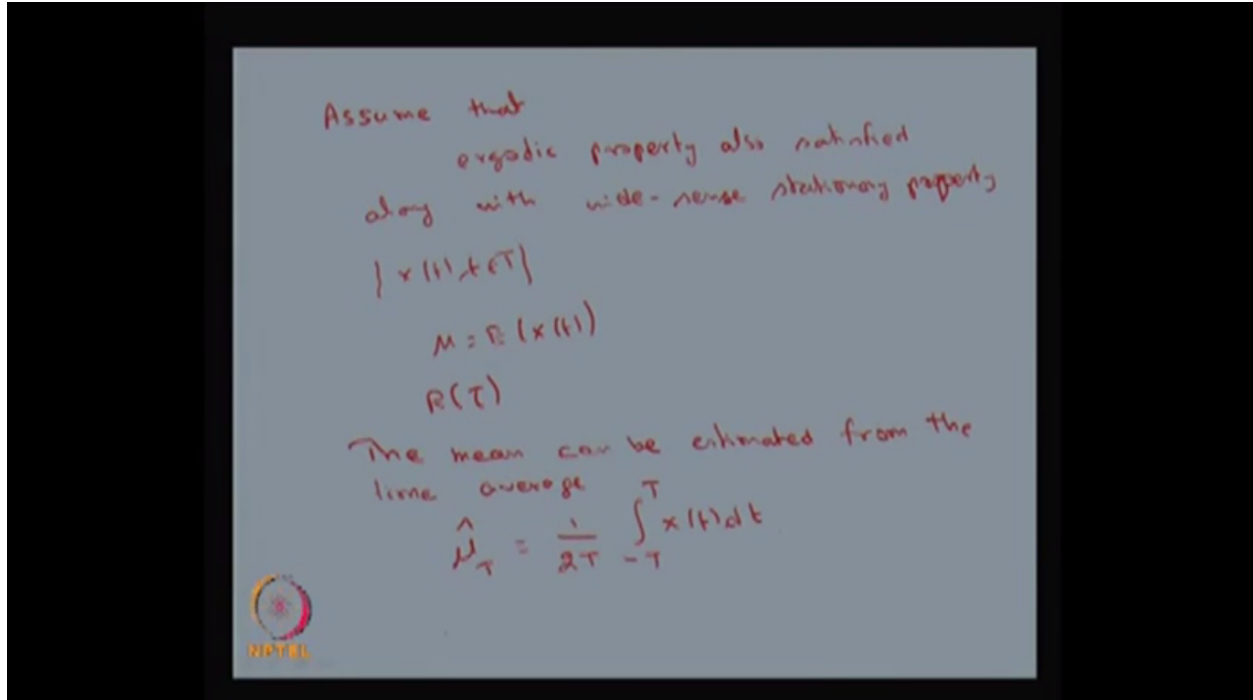 Assume that
ergodic property also satisfied
along with wide-sense stationary property
{x(t), t∈T}
μ = E(x(t))
R(τ)
The mean can be estimated from the
time average
μ̂_T = 1/2T ∫_{-T}^{T} x(t)dt
NPTEL